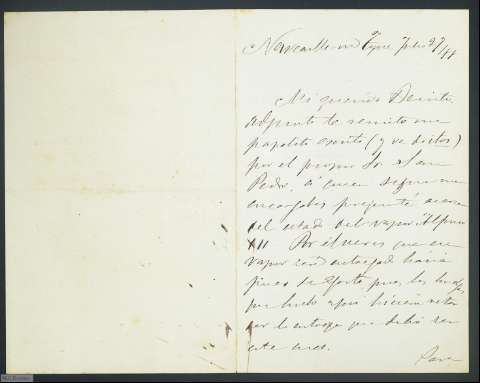 Newcastle on Tyne Julio 27/88
Mi querido Benito,
adjunto te remito un
papelito escrito (y ve dictos)
por el propio Sr. San
Pedro, á quien segun me
encargabas pregunté acerca
del estado del vapor Alfonso
XII Por él veras que ese
vapor será entregado hacia
fines de Agosto pues las
que hubo aqui hicieron
la entrega que debió ser
este mes.
Para